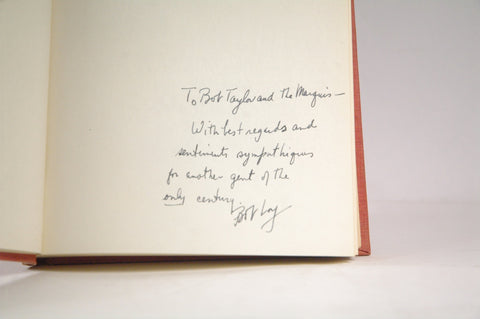 To Bob Taylor and the Marquis —
With best regards and
sentiments sympathiques
for another gent of the
only century.
Bob Loy